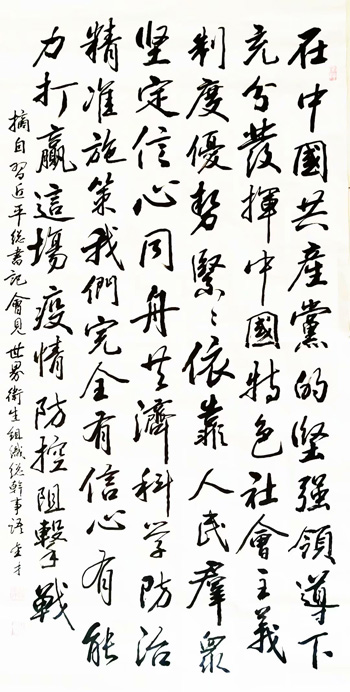 在中國共產黨的堅强領導下
充分發揮中國特色社會主義
制度優勢緊緊依靠人民羣眾
坚定信心同舟共濟科学防治
精准施策我們完全有信心有能
力打贏這場疫情防控阻擊戰
摘自習近平總書記會見世界衛生組織總幹事語